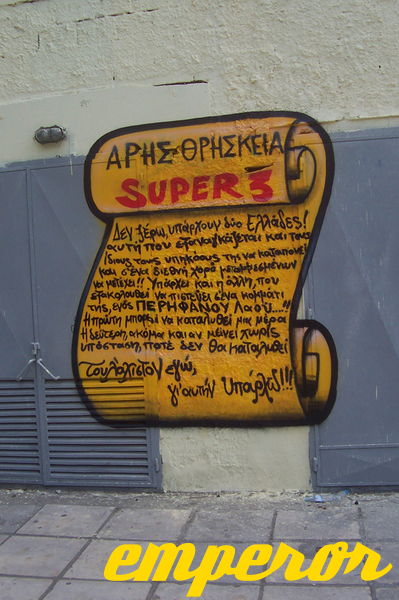 ΑΡΗΣ ΘΡΗΣΚΕΙΑ
SUPER 3
Δεν ξέρω, υπάρχουν δύο Ελλάδες!
αυτή που εξαναγκάζεται και τους
ίδιους τους υπηκόους της να καταπονεί
και σ'ένα διεθνή χορό μεταμφιεσμένων
να μετέχει!! Υπάρχει και η άλλη, που
εξακολουθεί να πιστεύει σ'ένα κομμάτι
της, ενός ΠΕΡΗΦΑΝΟΥ Λαού....!!
Η πρώτη μπορεί να καταλυθεί μια μέρα
Η δεύτερη, ακόμα και αν μείνει χωρίς
υπόσταση, ποτέ δεν θα καταλυθεί
Τουλάχιστον εγώ,
γι'αυτήν Υπάρχω!!!
emperor